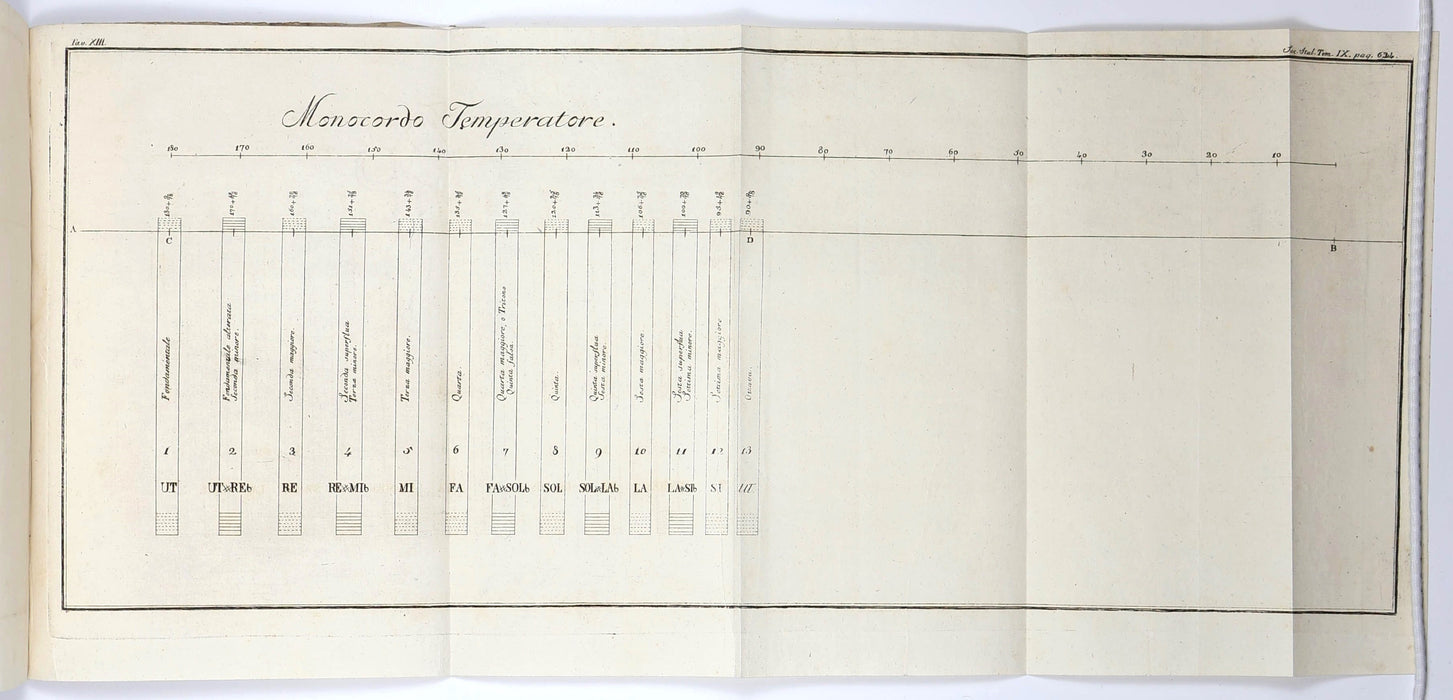 Tav. XIII.
Soc. Ital. Tom. IX. pag. 624.
Monocordo Temperatore.
180 170 160 150 140 130 120 110 100 90 80 70 60 50 40 30 20 10
A C D B
Fondamentale
Fondamentale alterata
Seconda minore.
Seconda maggiore.
Seconda superflua
Terza minore.
Terza maggiore.
Quarta.
Quarta maggiore, o Tritono
Quinta falsa.
Quinta.
Quinta superflua
Sesta minore.
Sesta maggiore.
Sesta superflua
Settima minore.
Settima maggiore
Ottava.
1 2 3 4 5 6 7 8 9 10 11 12 13
UT UT※REb RE RE※MIb MI FA FA※SOLb SOL SOL※LAb LA LA※SIb SI UT